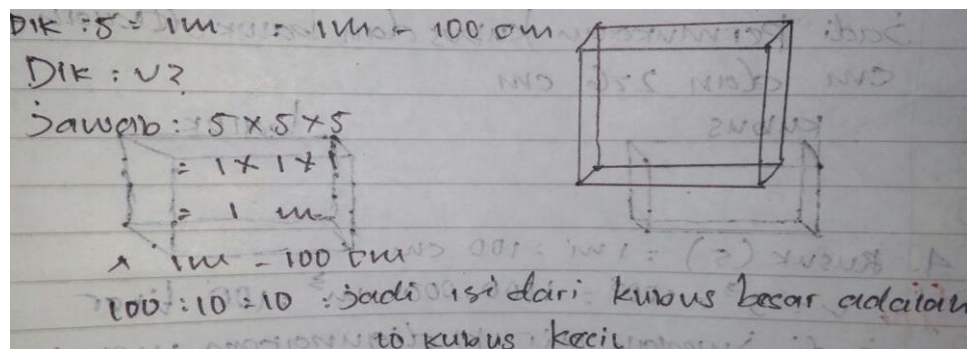 Dik : s = 1m = 1m = 100 cm
Dik : v?
Jawab : s x s x s
= 1 x 1 x 1
= 1 m
x 1m = 100 cm
100 : 10 = 10 : jadi isi dari kubus besar adalah
10 kubus kecil